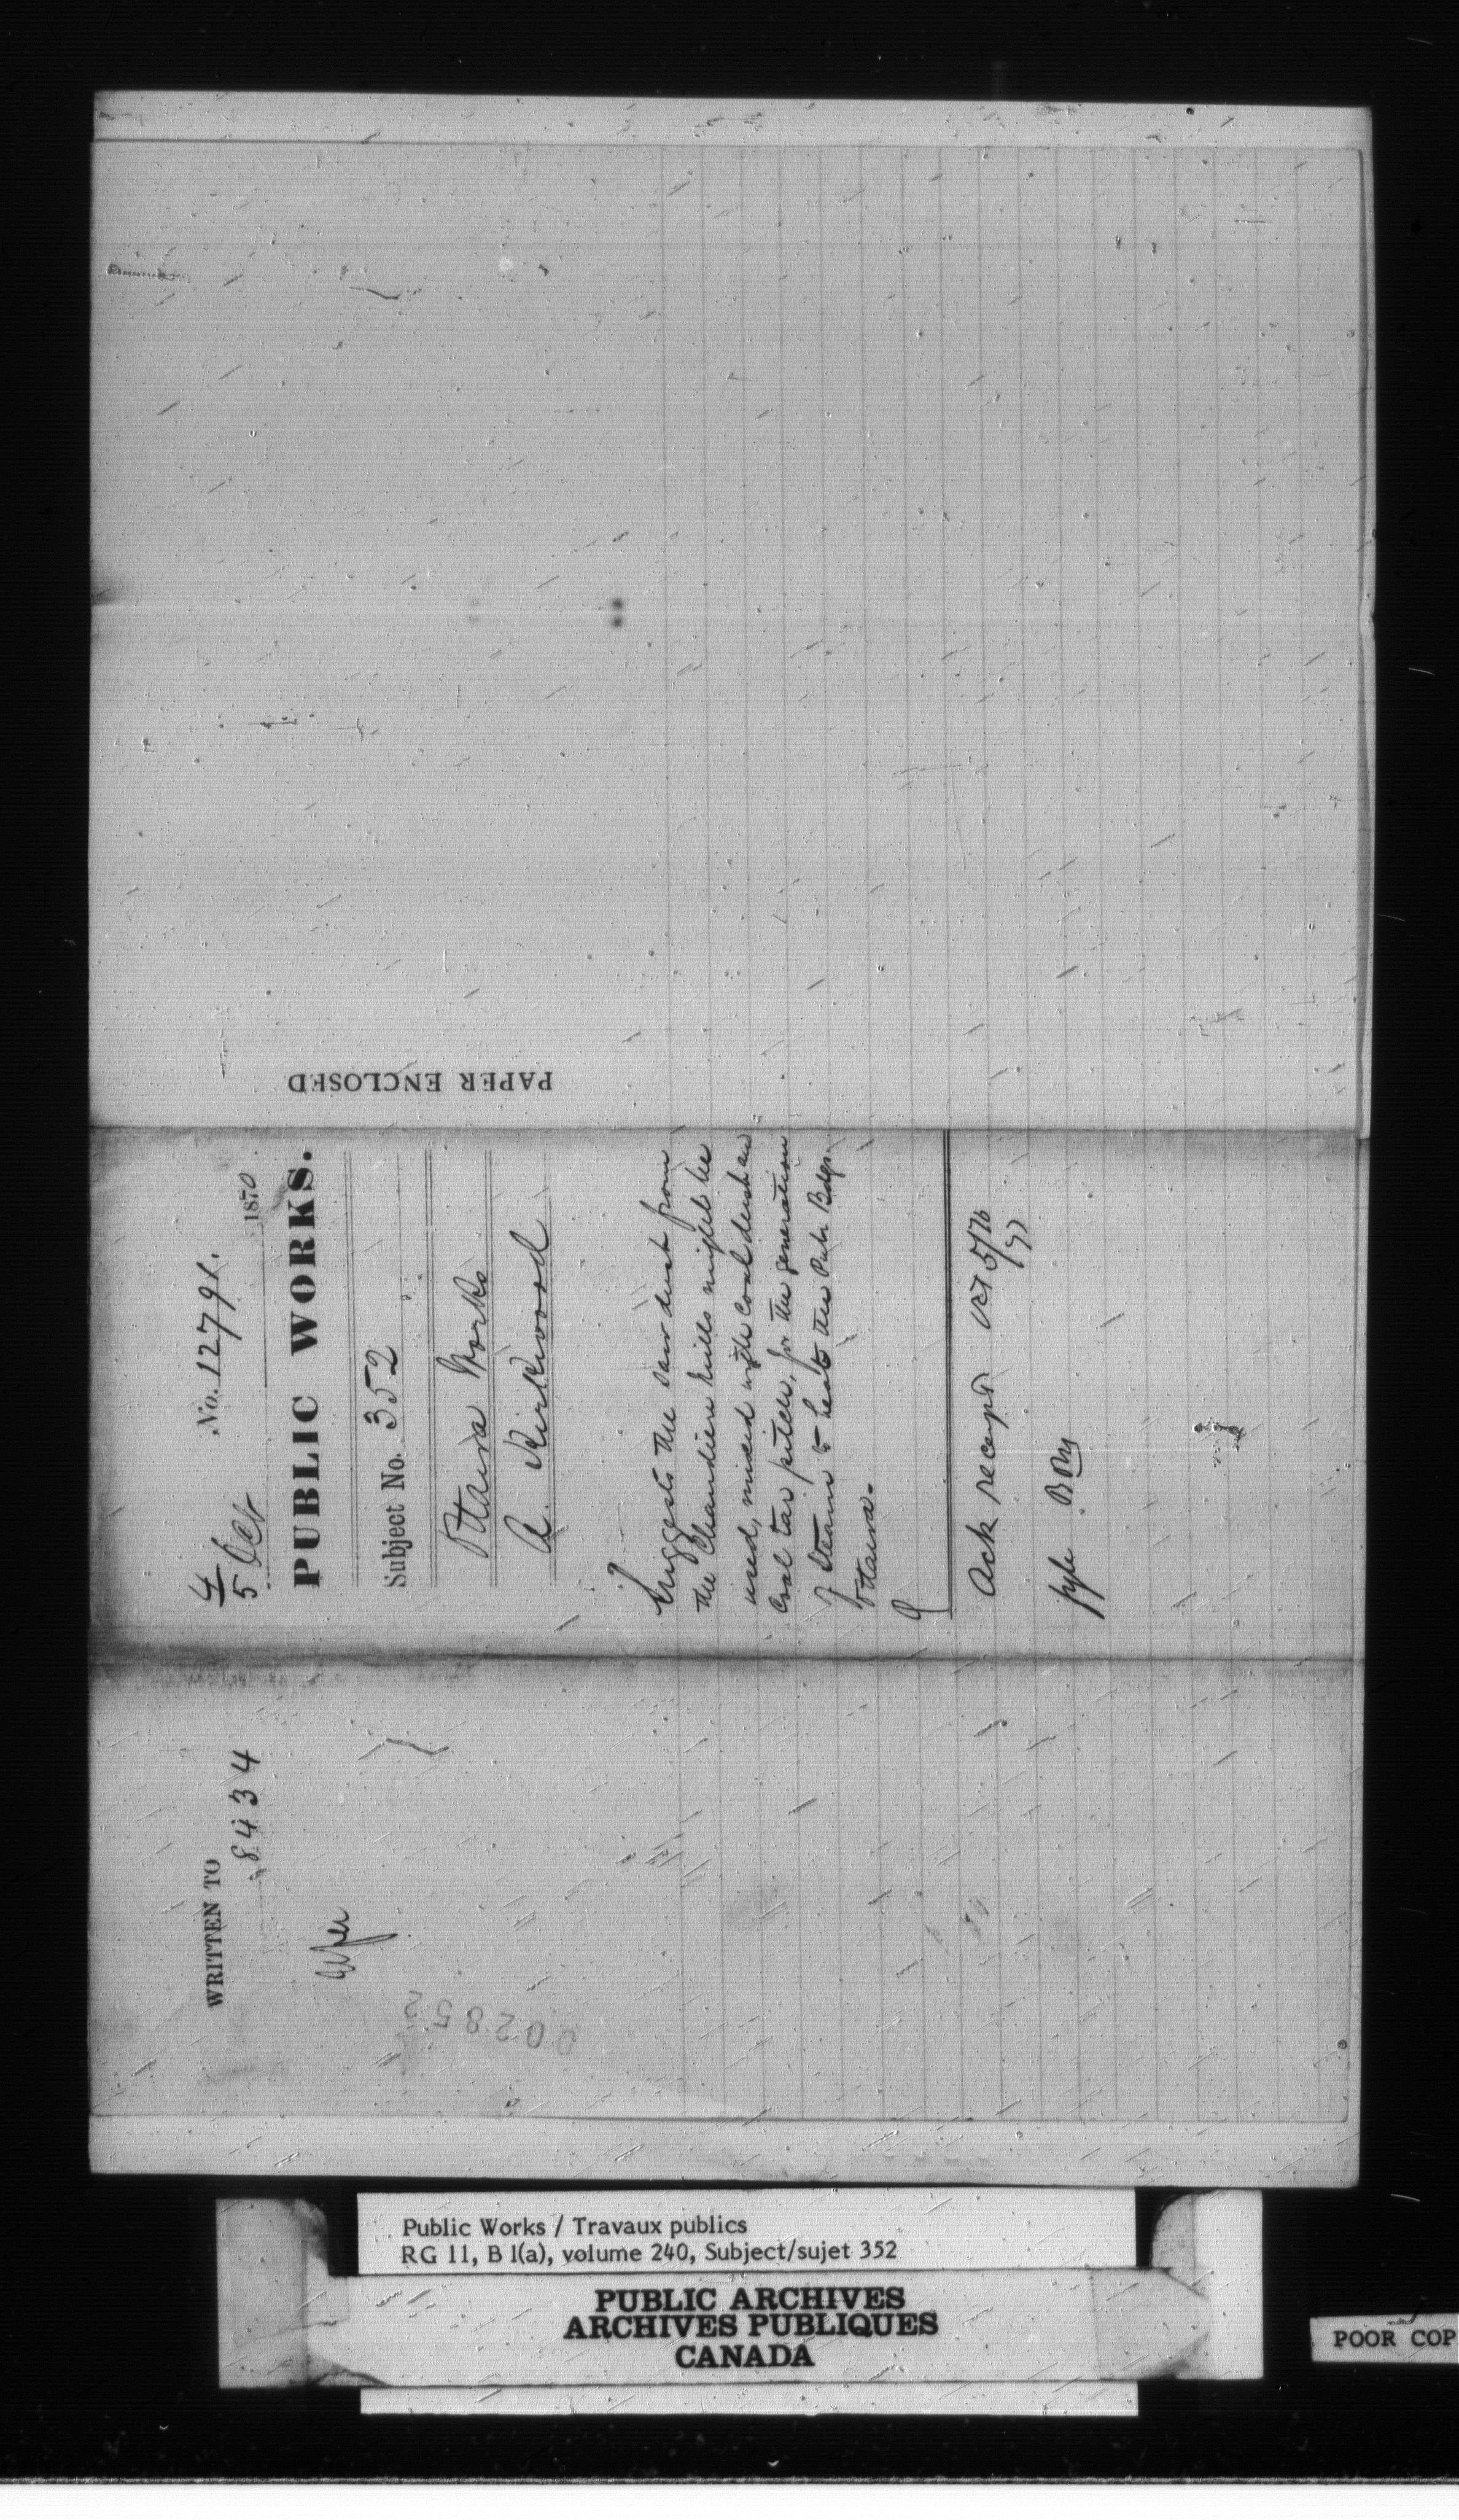 PAPER ENCLOSED
4/5 Oct No. 12791. 1870
PUBLIC WORKS.
Subject No. 352
Ottawa Works
A. Kirkwood
Suggests the saw dust from
the Chaudiere Mills might be
used, mixed with coal dust and
Coal tar pitch, for the generation
of steam to heat the Pub. Bdgs.
Ottawa.
Ack receipt Oct 5/70
fyle
WRITTEN TO
8434
002852
Public Works / Travaux publics
RG 11, B 1(a), volume 240, Subject/sujet 352
PUBLIC ARCHIVES
ARCHIVES PUBLIQUES
CANADA
POOR COP